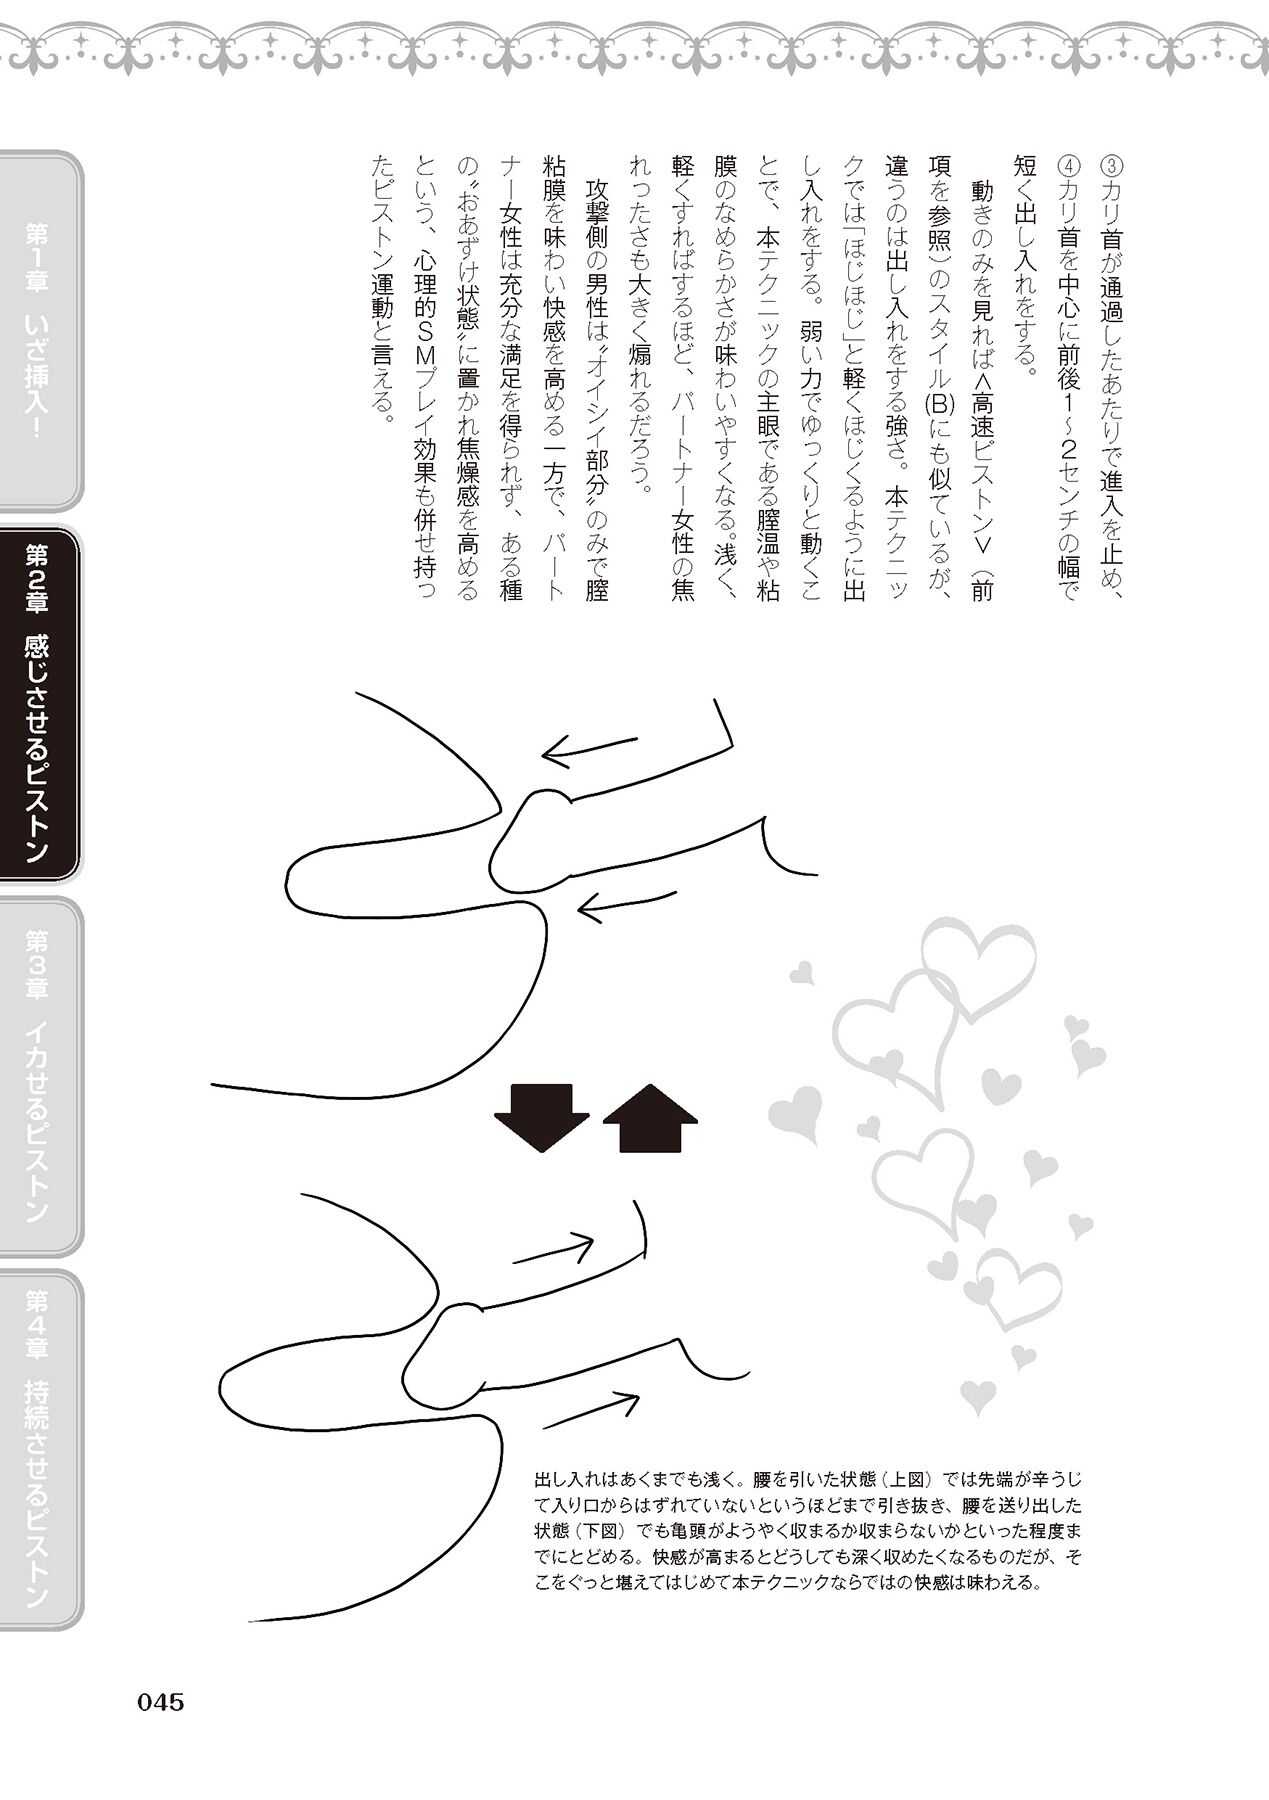 ③カリ首が通過したあたりで進入を止め、
④カリ首を中心に前後1〜2センチの幅で
短く出し入れをする。
動きのみを見れば<高速ピストン>（前
項を参照）のスタイル(B)にも似ているが、
違うのは出し入れをする強さ。本テクニッ
クでは「ほじほじ」と軽くほじくるように出
し入れをする。弱い力でゆっくりと動くこ
とで、本テクニックの主眼である膣温や粘
膜のなめらかさが味わいやすくなる。浅く、
軽くすればするほど、パートナー女性の焦
れったさも大きく煽れるだろう。
攻撃側の男性は〝オイシイ部分〟のみで膣
粘膜を味わい快感を高める一方で、パート
ナー女性は充分な満足を得られず、ある種
の〝おあずけ状態〟に置かれ焦燥感を高める
という、心理的SMプレイ効果も併せ持っ
たピストン運動と言える。
第1章 いざ挿入！
第2章 感じさせるピストン
第3章 イカせるピストン
第4章 持続させるピストン
出し入れはあくまでも浅く。腰を引いた状態（上図）では先端が辛うじ
て入り口からはずれていないというほどまで引き抜き、腰を送り出した
状態（下図）でも亀頭がようやく収まるか収まらないかといった程度ま
でにとどめる。快感が高まるとどうしても深く収めたくなるものだが、そ
こをぐっと堪えてはじめて本テクニックならではの快感は味わえる。
045